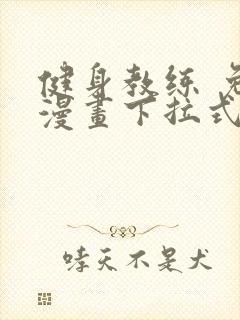 健身教练 免
漫畫下拉式
哮天不是犬